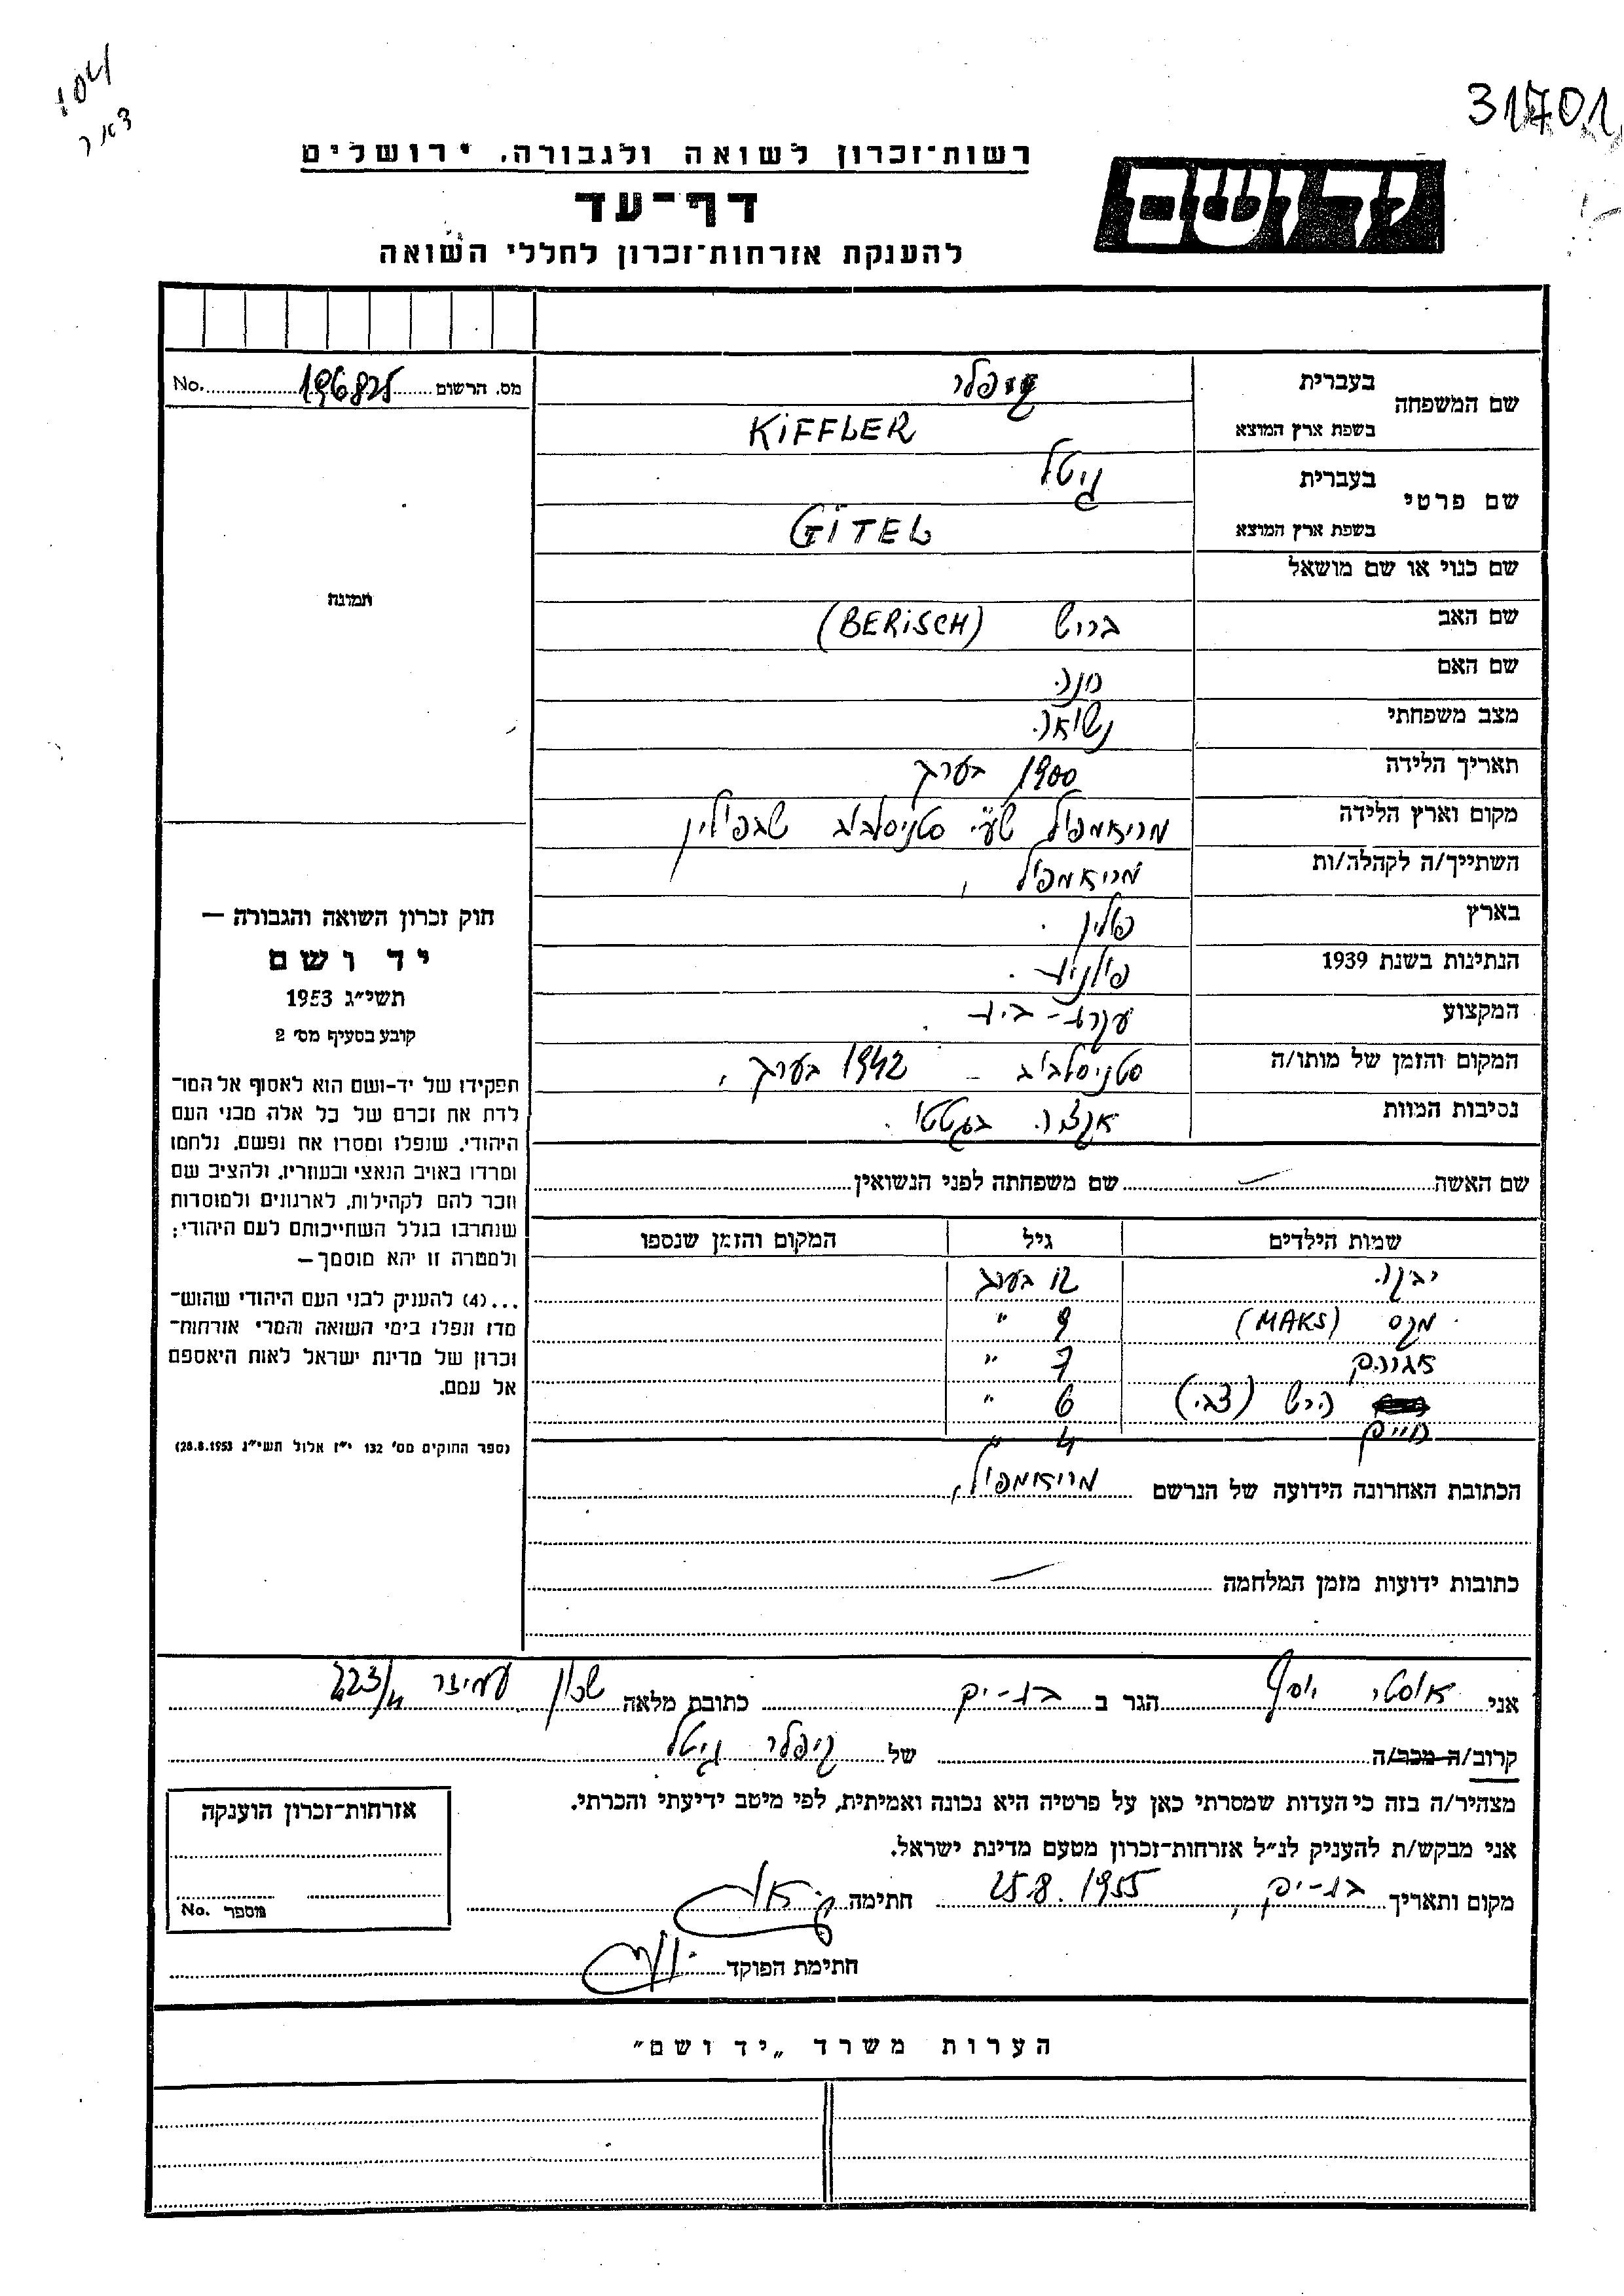 31701
רשות־זכרון לשואה ולגבורה, ירושלים
יד ושם
דף־עד
להענקת אזרחות־זכרון לחללי השואה
מס. הרשום 196825 No.
שם המשפחה בעברית קיפלר
בשפת ארץ המוצא KIFFLER
שם פרטי בעברית גיטל
בשפת ארץ המוצא GITEL
שם כנוי או שם מושאל
שם האב בריש (BERISCH)
שם האם
מצב משפחתי נשואה
תאריך הלידה 1900 בערך
מקום וארץ הלידה מריאמפול ע"י סטניסלביב שבפולין
השתייך/ה לקהלה/ות מריאמפול,
בארץ פולין.
הנתינות בשנת 1939 פולנית.
המקצוע עקרת-בית.
המקום והזמן של מותו/ה סטניסלביב – 1942 בערך,
נסיבות המוות בגטטו.
שם האשה שם משפחתה לפני הנשואין
שמות הילדים גיל המקום והזמן שנספו
12 בערך
מקס (MAKS) 9 "
7 "
הרש (צבי) 6 "
חיים 4 "
הכתובת האחרונה הידועה של הנרשם מריאמפול,
כתובות ידועות מזמן המלחמה
תמונה
חוק זכרון השואה והגבורה —
יד ושם
תשי״ג 1953
קובע בסעיף מס׳ 2
תפקידו של יד-ושם הוא לאסוף אל המו־
לדת את זכרם של כל אלה מבני העם
היהודי, שנפלו ומסרו את נפשם, נלחמו
ומרדו באויב הנאצי ובעוזריו, ולהציב שם
וזכר להם לקהילות, לארגונים ולמוסדות
שנחרבו בגלל השתייכותם לעם היהודי;
ולמטרה זו יהא מוסמך—
...(4) להעניק לבני העם היהודי שהוש־
מדו ונפלו בימי השואה והמרי אזרחות־
זכרון של מדינת ישראל לאות היאספם
אל עמם.
(ספר החוקים מס׳ 132 י״ז אלול תשי״ג 28.8.1953)
אני יוסף הגר ב בת-ים כתובת מלאה שכון עמידר 223/4
קרוב/ה מכר/ה של קיפלר גיטל
מצהיר/ה בזה כי העדות שמסרתי כאן על פרטיה היא נכונה ואמיתית, לפי מיטב ידיעתי והכרתי.
אני מבקש/ת להעניק לנ״ל אזרחות־זכרון מטעם מדינת ישראל.
מקום ותאריך בת-ים, 25.8.1955 חתימה
חתימת הפוקד
אזרחות־זכרון הוענקה
מספר No.
הערות משרד „יד ושם״